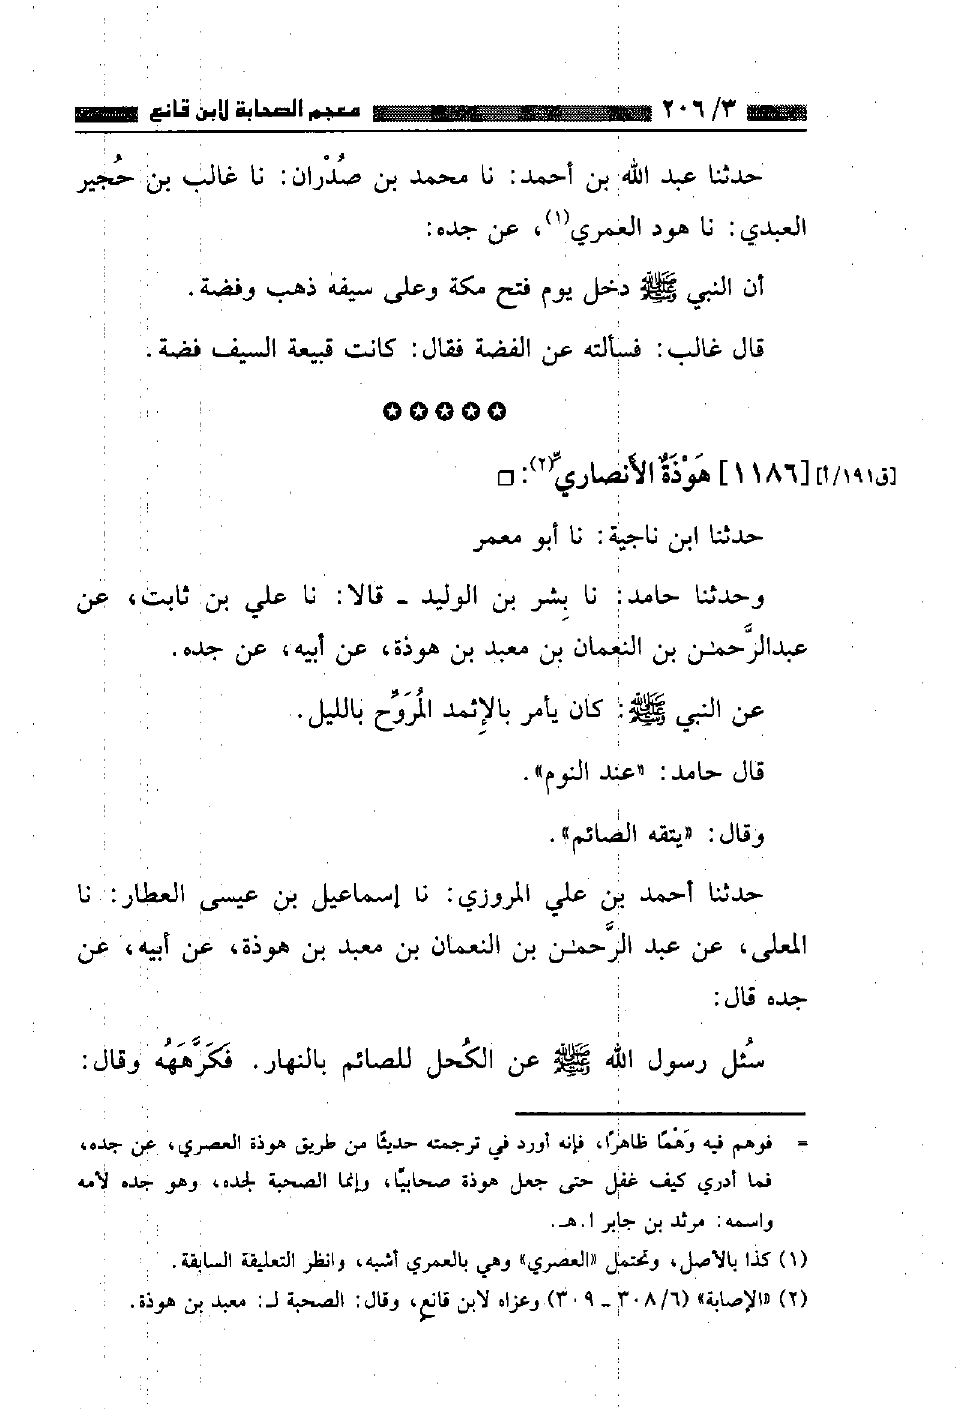 ٢٠٦/٣ معجم الصحابة لابن قانع
حدثنا عبد الله بن أحمد: نا محمد بن صُدْران: نا غالب بن حُجير
العبدي: نا هود العمري(١)، عن جده:
أن النبي ﷺ دخل يوم فتح مكة وعلى سيفه ذهب وفضة.
قال غالب: فسألته عن الفضة فقال: كانت قبيعة السيف فضة.
✪✪✪✪✪
[ق١٩١/أ] [١١٨٦] هَوْذَةُ الأنصاري(٢): □
حدثنا ابن ناجية: نا أبو معمر
وحدثنا حامد: نا بِشر بن الوليد ـ قالا: نا علي بن ثابت، عن
عبدالرَّحمٰن بن النعمان بن معبد بن هوذة، عن أبيه، عن جده.
عن النبي ﷺ: كان يأمر بالإِثمد المُرَوَّح بالليل.
قال حامد: «عند النوم».
وقال: «يتقه الصائم».
حدثنا أحمد بن علي المروزي: نا إسماعيل بن عيسى العطار: نا
المعلى، عن عبد الرَّحمٰن بن النعمان بن معبد بن هوذة، عن أبيه، عن
جده قال:
سُئل رسول الله ﷺ عن الكُحل للصائم بالنهار. فَكَرَّهَهُ وقال:
= فوهم فيه وَهْمًا ظاهرًا، فإنه أورد في ترجمته حديثًا من طريق هوذة العصري، عن جده،
فما أدري كيف غفل حتى جعل هوذة صحابيًّا، وإنما الصحبة لجده، وهو جده لأمه
واسمه: مرثد بن جابر ا.هـ.
(١) كذا بالأصل، وتحتمل «العصري» وهي بالعمري أشبه، وانظر التعليقة السابقة.
(٢) «الإصابة» (٣٠٨/٦ ـ ٣٠٩) وعزاه لابن قانع، وقال: الصحبة لـ: معبد بن هوذة.